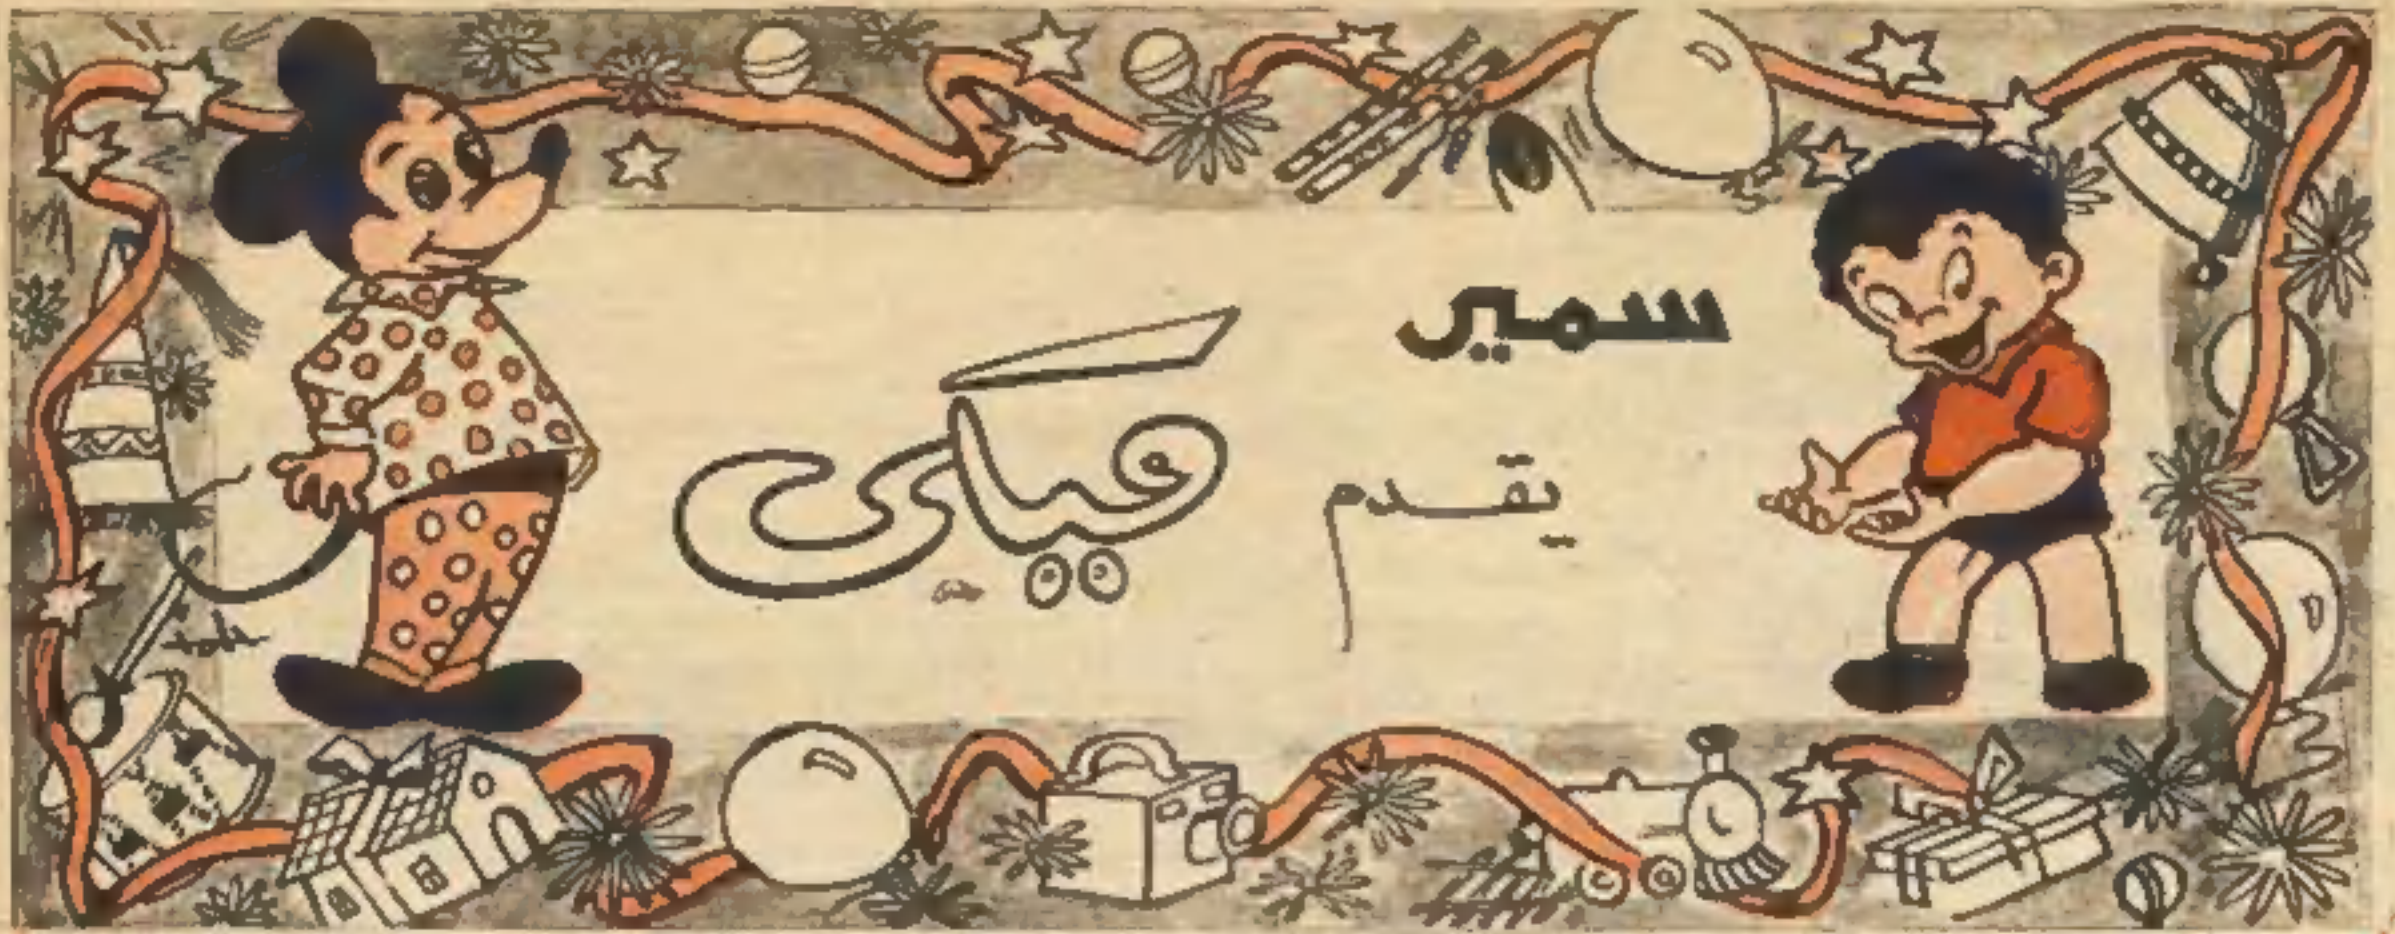 سمير
يقدم
ميكى